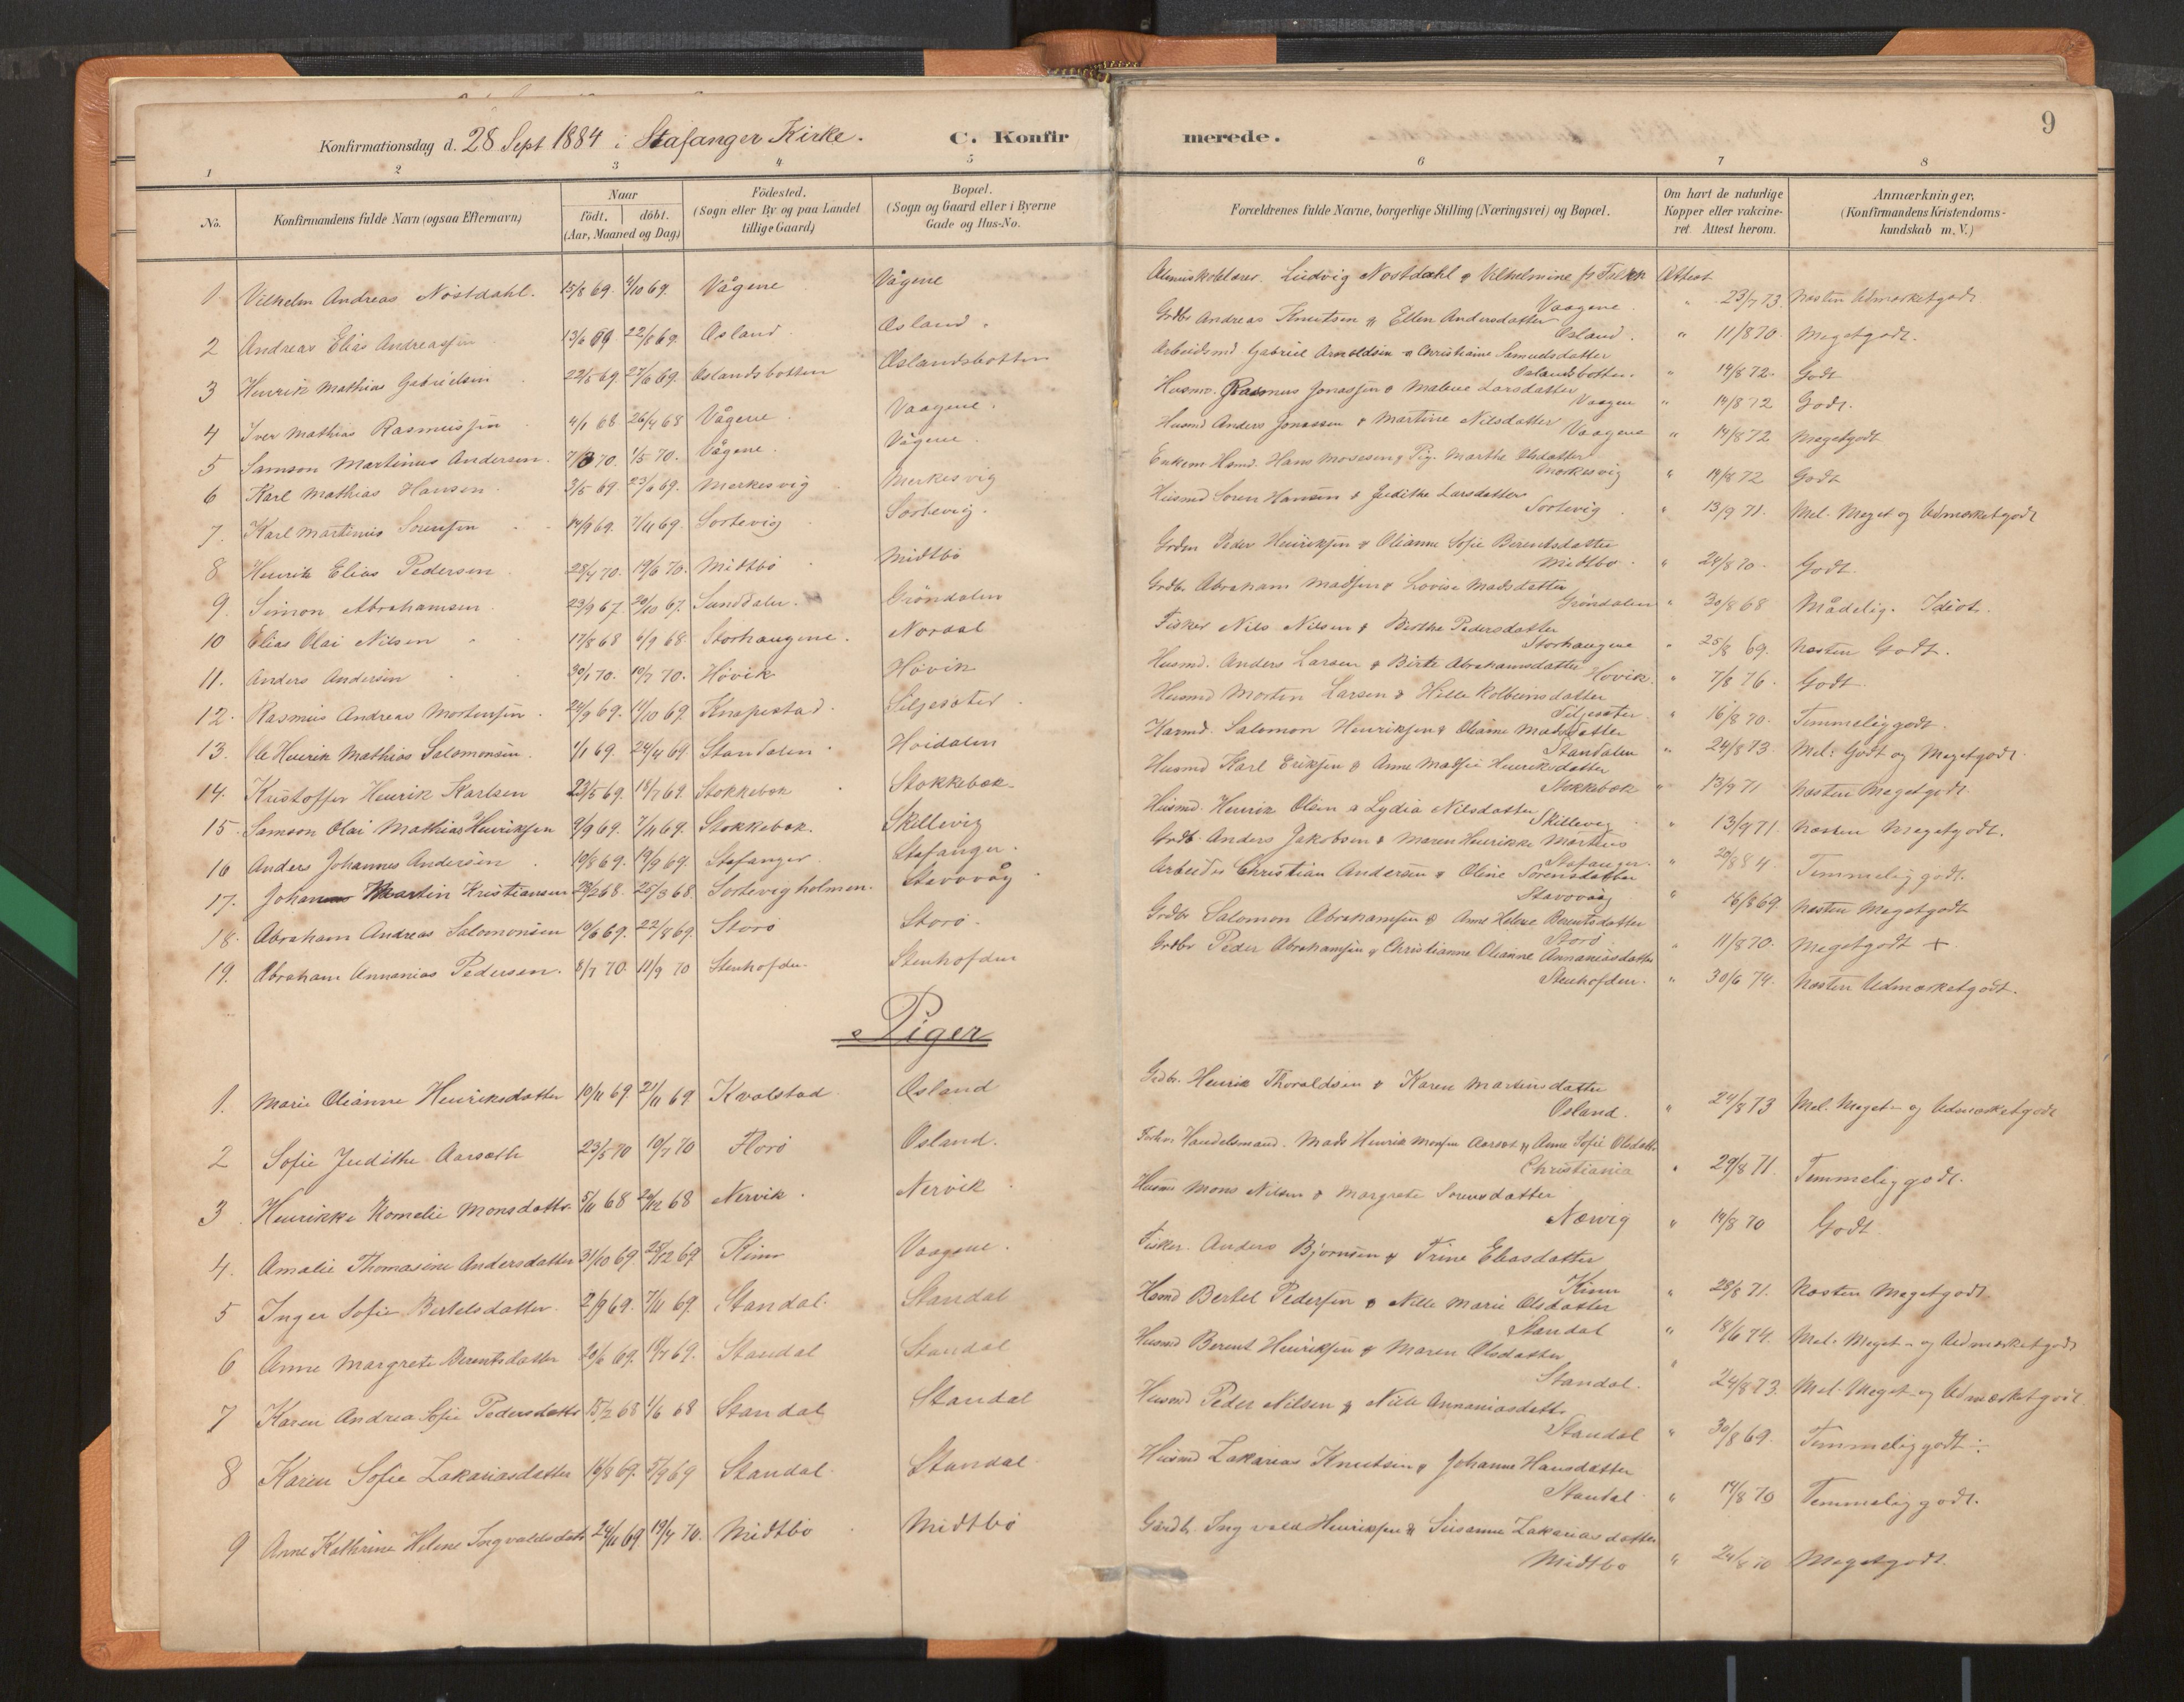 9
Konfirmationsdag d. 28 Sept 1884 i Stafanger Kirke. C. Konfirmerede.
1 2 3 4 5 6 7 8
No. Konfirmandens fulde Navn (ogsaa Efternavn) Naar födt. döbt. (Aar, Maaned og Dag) Födested. (Sogn eller By og paa Landet tillige Gaard) Bopæl. (Sogn og Gaard eller i Byerne Gade og Hus-No. Forældrenes fulde Navne, borgerlige Stilling (Næringsvei) og Bopæl. Om havt de naturlige Kopper eller vakcineret. Attest herom. Anmærkninger, (Konfirmandens Kristendomskundskab m. V.)
1 Vilhelm Andreas Nöstdahl. 15/8 69. 4/10 69. Vågene Vågene Ludvig Nostdahl & Vilhelmine Vaagene Attest " 23/7 73 Næsten Udmærketgodt
2 Andreas Elias Andreassen 13/6 69 22/8 69. Osland Osland. Grdbr Andreas Knutsen & Ellen Andersdatter Osland. " 11/8 70. Megetgodt.
3 Henrik Mathias Gabrielsen 22/5 69. 27/6 69. Oslandsbotten Oslandsbotten Arbeidsmd Gabriel Arnoldsen & Christiane Samuelsdatter Oslandsbotten. " 14/8 72. Godt
4 Iver Mathias Rasmussen 4/1 68 26/4 68 Vågene. Vaagene. Husmd. Rasmus Jonassen & Malene Larsdatter Vaagen " 14/8 72 Godt.
5 Samson Martinus Andersen. 7/3 70. 1/5 70. Vågene. Vågene. Husmd Anders Jonassen & Martine Nilsdatter Vaagene " 14/8 72 Megetgodt
6 Karl Mathias Hansen 3/5 69. 23/6 69. Merkesvig Merkesvig Enkem. Hsmd. Hans Mosesen & Pig. Marthe Olsdatter Merkesvig " 14/8 72 Godt
7. Karl Martinus Sörensen 14/9 69. 7/11 69. Sortevig Sortevig. Husmd Sören Hansen & Judithe Larsdatter Sortevig " 13/9 71. Mel. Meget og Udmærketgodt
8 Henrik Elias Pedersen 28/4 70. 19/6 70. Midtbö Midtbö Peder Henriksen & Olianne Sofie Berentsdatter Midtbö. " 24/8 70. Godt.
9. Simon Abrahamsen 23/9 67. 20/10 67. Sanddalen. Gröndalen Grdbr. Abraham Madsen & Lovise Madsdatter Gröndalen " 30/8 68 Mådelig. Idiot.
10 Elias Olai Nilsen 17/8 68 6/9 68 Storhaugene. Nordal Fisker Nils Nilsen & Birthe Pedersdatter Storhaugene " 25/8 69. Næsten Godt.
11. Anders Andersen 30/1 70. 10/7 70. Hövik Hövik Husmd. Anders Larsen & Birte Abrahamsdatter Hövik. " 7/8 76. Godt
12. Rasmus Andreas Mortensen. 24/9 69. 11/10 69. Knapstad. Siljesæter Husmd Morten Larsen & Kolbeinsdatter Siljesæter " 16/8 70. Temmeliggodt.
13. Ole Henrik Mathias Salomonsen. 1/1 69. 24/4 69 Standalen. Höidalen Salomon Henriksen & Oliane Madsdatter Standalen " 24/8 73. Mel: Godt og Megetgodt.
14. Kristoffer Henrik Karlsen 23/5 69. 18/7 69. Stokkebæk Stokkebæk Husmd Karl Eriksen & Anne Madsie Henriksdatter Stokkebæk " 13/9 71 Næsten Megetgodt
15. Samson Olai Mathias Henriksen 9/9 69. 7/11 69. Stokkebæk. Skillevig Husmd. Henrik Olsen & Lydia Nilsdatter Skillevig " 13/9 71. Næsten Megetgodt.
16 Anders Johannes Andersen 10/8 69. 19/9 69. Stafanger. Stafanger. Grdbr. Anders Jakobsen & Maren Henrikke Mortens Stafanger. " 20/8 84. Temmeliggodt.
17. Johan Martin Kristiansen 23/2 68. 25/3 68. Sortevigholmen. Stavovåg Arbeider Christian Andersen & Oline Sörensdatter Stavovåg " 16/8 69 Næsten Megetgodt
18. Abraham Andreas Salomonsen 10/6 69. 22/8 69. Storö Storö. Grdbr Salomon Abrahamsen & Anne Helene Berentsdatter Storö " 11/8 70. Megetgodt +
19. Abraham Annanias Pedersen. 8/7 70. 11/9 70 Stenhofden. Stenhofden Grdbr Peder Abrahamsen & Christianne Olianne Annaniasdatter Stenhofden. " 30/6 74. Næsten Udmærketgodt.
Piger
1. Marie Olianne Henriksdatter 10/11 69. 21/11 69 Kvalstad Osland Grdbr. Henrik Thoraldsen & Karen Martinsdatter Osland. " 24/8 73 Mel. Meget- og Udmærketgodt
2 Sofie Judithe Aarsæth 23/5 70 10/7 70 Florö Osland. Handelsmand. Mads Henrik Monsen Aarsæt & Anne Sofie Olsdatter Christiania " 29/8 71. Temmeliggodt.
3 Henrikke Kornelie Monsdatter 5/11 68 26/12 68 Nervik. Nervik Husmd Mons Nilsen & Margrete Sörensdatter Nervig " 14/8 70 Godt
4. Amalie Thomasine Andersdatter 31/10 69 25/12 69 Kinn Vaagene. Fisker. Anders Björnsen & Trine Eliasdatter Kinn " 28/8 71. Næsten Megetgodt
5 Inger Sofie Bertelsdatter 2/9 69. 7/11 69. Standal. Standal Hsmd Bertel Pedersen & Nille Marie Olsdatter Standal " 18/6 74. Mel. Meget- og Udmærketgodt
6 Anne Margrete Berentsdatter 20/6 69. 18/7 69. Standal Standal Husmd Berent Henriksen & Maren Olsdatter Standal. " 24/8 73. Mel. Meget- og Udmærketgodt
7 Karen Andrea Sofie Pedersdatter 15/2 68 1/6 68 Standal Standal Husmd Peder Nilsen & Nille Annaniasdatter Standal " 30/8 69. Temmeliggodt
8 Karen Sofie Zakariasdatter 14/8 69. 5/9 69 Standal. Standal Husmd Zakarias Knutsen & Johanne Hansdatter Standal " 14/8 70 Temmeliggodt.
9 Anne Kathrine Helene Ingvaldsdatter 24/11 69 19/4 70. Midtbö Midtbö Gårdbr. Ingvald Henriksen & Susanne Zakariasdatter Midtbö " 24/8 70 Megetgodt.